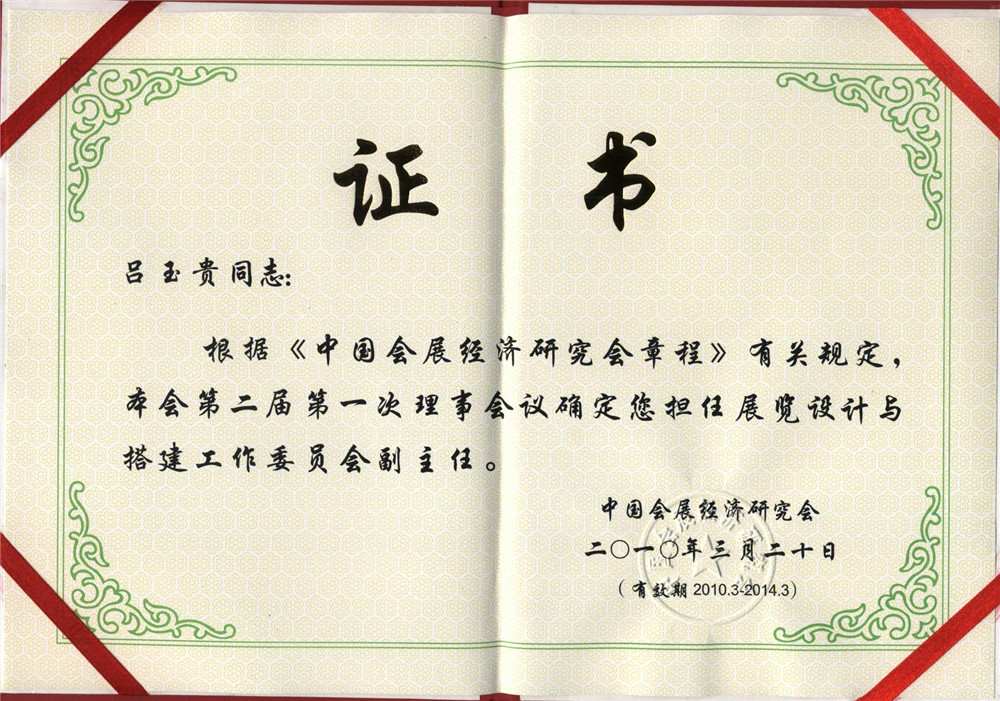 证 书
吕玉贵同志:
根据《中国会展经济研究会章程》有关规定,
本会第二届第一次理事会议确定您担任展览设计与
搭建工作委员会副主任。
中国会展经济研究会
二〇一〇年三月二十日
(有效期2010.3-2014.3)